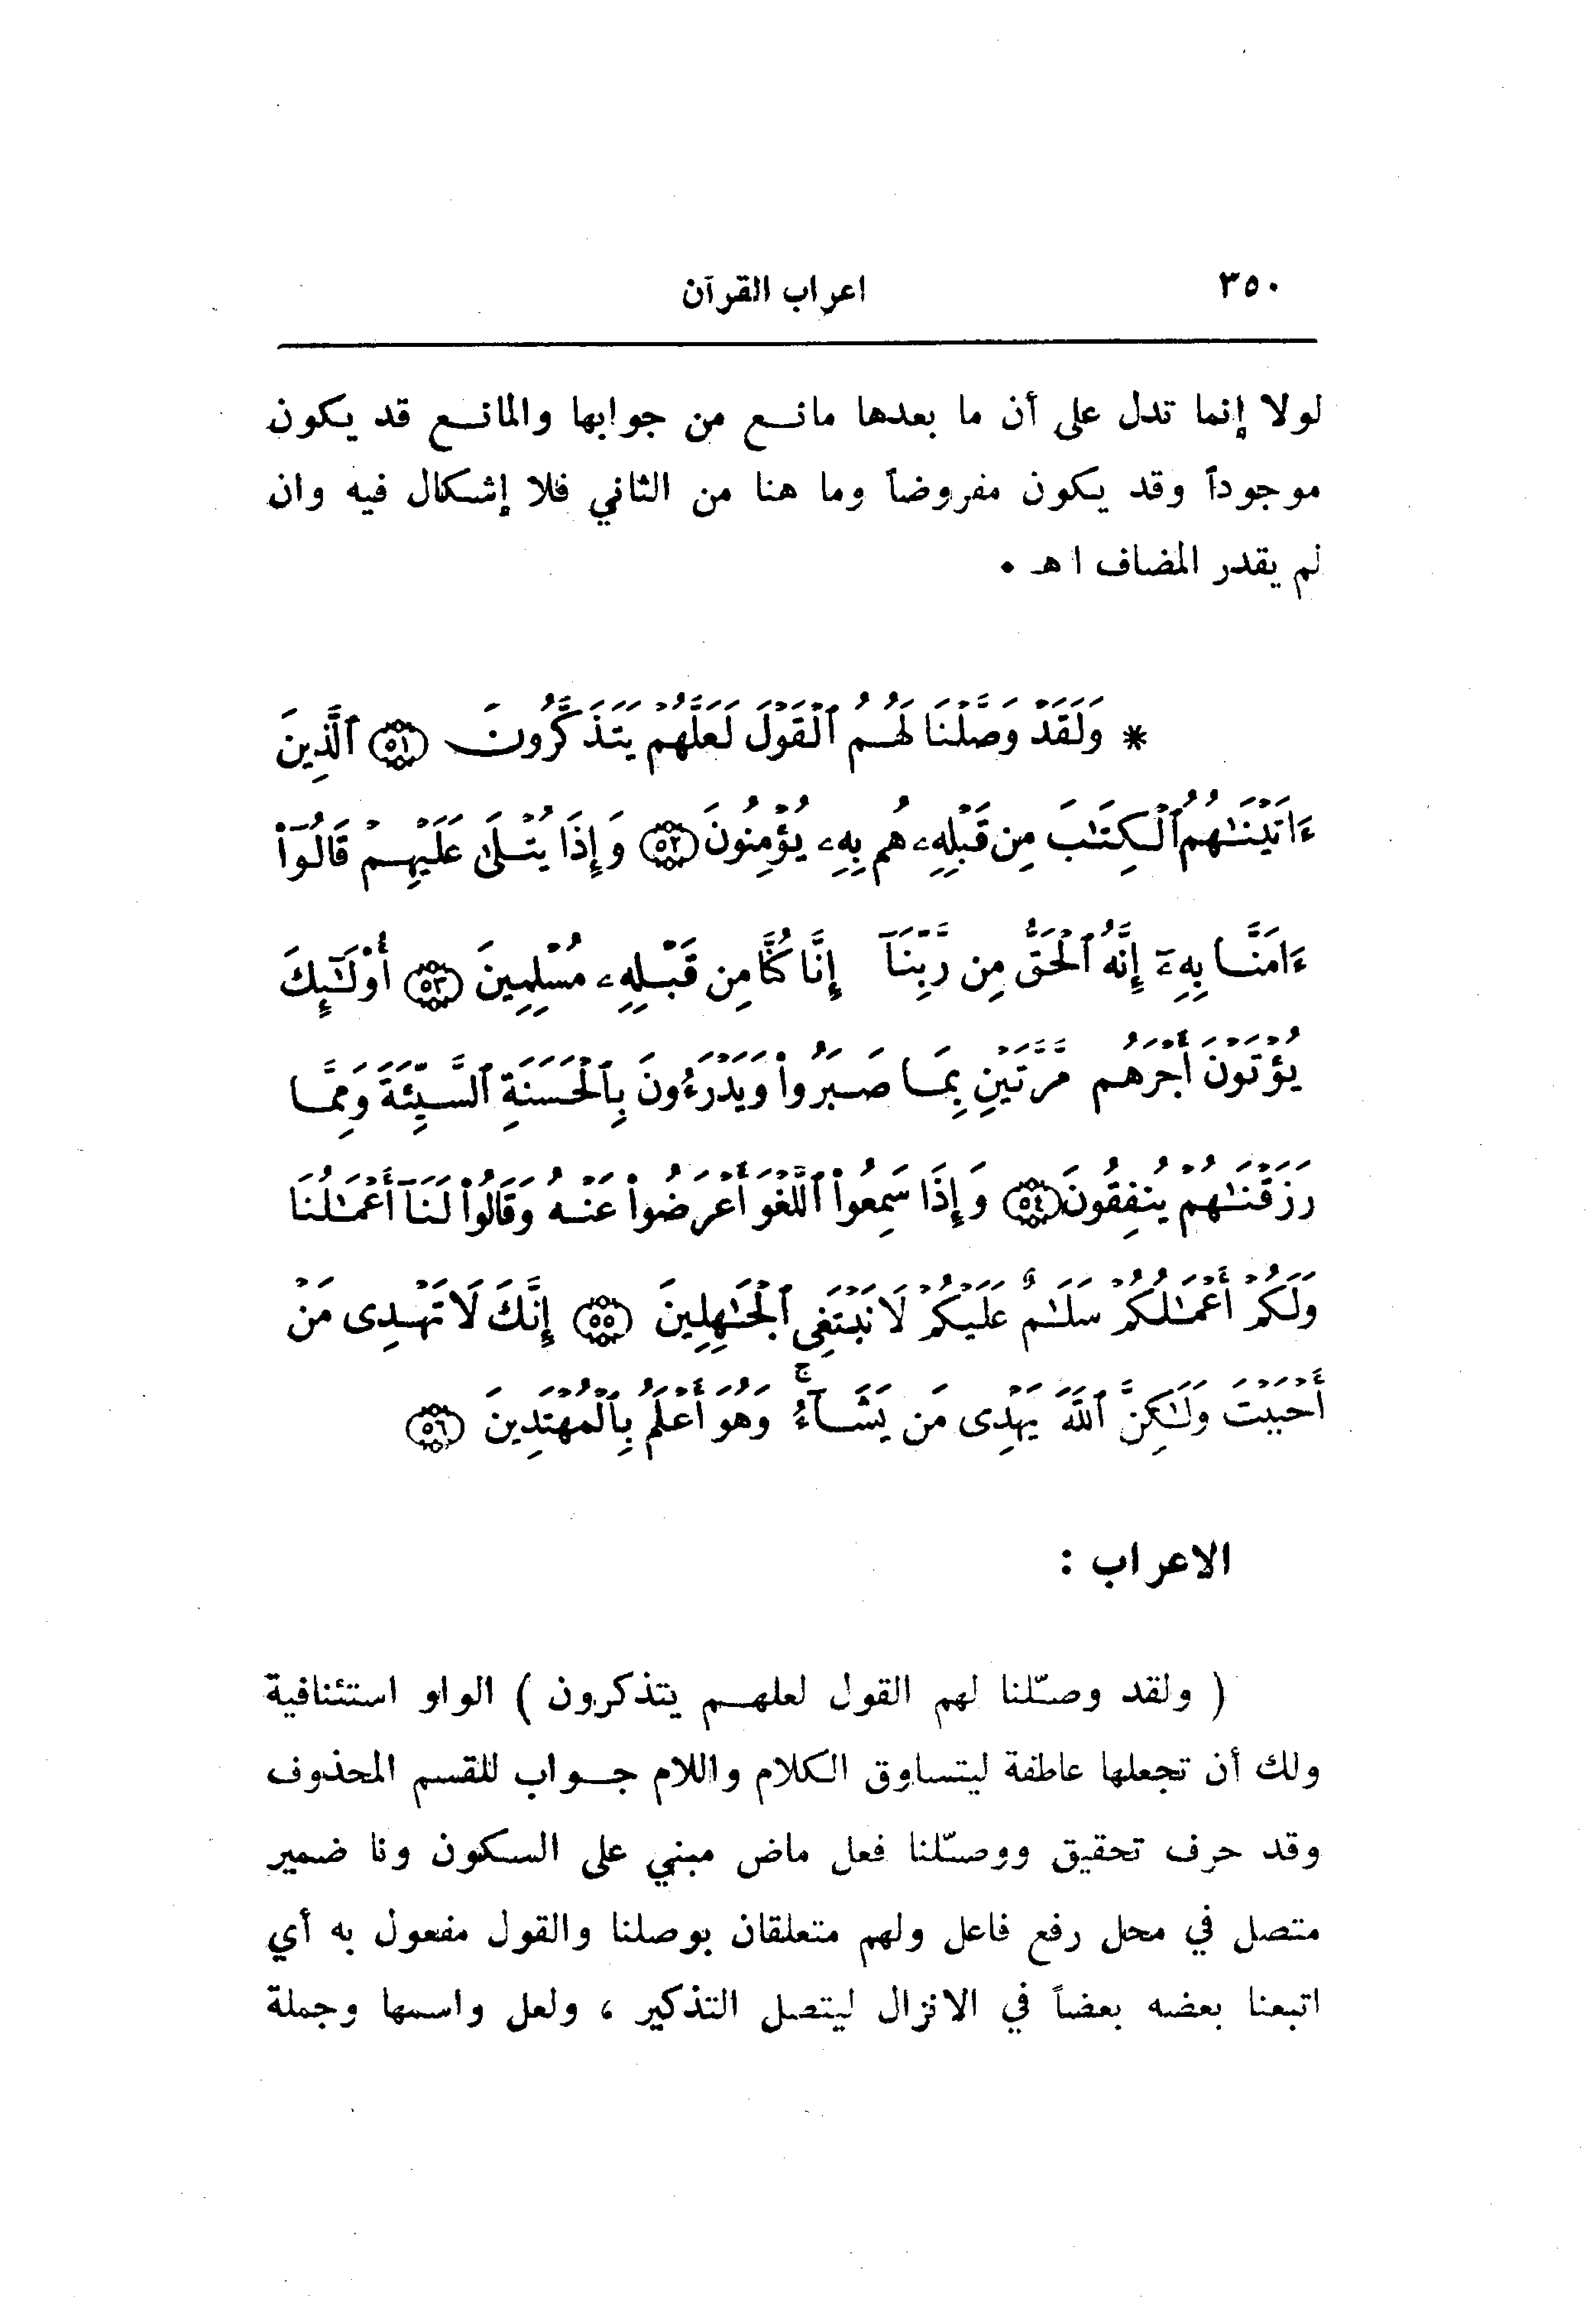 ٣٥٠ اعراب القرآن
لولا إنما تدل على أن ما بعدها مانع من جوابها والمانع قد يكون
موجوداً وقد يكون مفروضاً وما هنا من الثاني فلا إشكال فيه وان
لم يقدر المضاف اهـ .
* وَلَقَدْ وَصَّلْنَا لَهُمُ ٱلْقَوْلَ لَعَلَّهُمْ يَتَذَكَّرُونَ ﴿٥١﴾ ٱلَّذِينَ
ءَاتَيْنَٰهُمُ ٱلْكِتَٰبَ مِن قَبْلِهِۦ هُم بِهِۦ يُؤْمِنُونَ ﴿٥٢﴾ وَإِذَا يُتْلَىٰ عَلَيْهِمْ قَالُوٓا۟
ءَامَنَّا بِهِۦٓ إِنَّهُ ٱلْحَقُّ مِن رَّبِّنَآ إِنَّا كُنَّا مِن قَبْلِهِۦ مُسْلِمِينَ ﴿٥٣﴾ أُو۟لَٰٓئِكَ
يُؤْتَوْنَ أَجْرَهُم مَّرَّتَيْنِ بِمَا صَبَرُوا۟ وَيَدْرَءُونَ بِٱلْحَسَنَةِ ٱلسَّيِّئَةَ وَمِمَّا
رَزَقْنَٰهُمْ يُنفِقُونَ ﴿٥٤﴾ وَإِذَا سَمِعُوا۟ ٱللَّغْوَ أَعْرَضُوا۟ عَنْهُ وَقَالُوا۟ لَنَآ أَعْمَٰلُنَا
وَلَكُمْ أَعْمَٰلُكُمْ سَلَٰمٌ عَلَيْكُمْ لَا نَبْتَغِى ٱلْجَٰهِلِينَ ﴿٥٥﴾ إِنَّكَ لَا تَهْدِى مَنْ
أَحْبَبْتَ وَلَٰكِنَّ ٱللَّهَ يَهْدِى مَن يَشَآءُ ۚ وَهُوَ أَعْلَمُ بِٱلْمُهْتَدِينَ ﴿٥٦﴾
الاعراب :
( ولقد وصّلنا لهم القول لعلهم يتذكرون ) الواو استئنافية
ولك أن تجعلها عاطفة ليتساوق الكلام واللام جواب للقسم المحذوف
وقد حرف تحقيق ووصّلنا فعل ماض مبني على السكون ونا ضمير
متصل في محل رفع فاعل ولهم متعلقان بوصلنا والقول مفعول به أي
اتبعنا بعضه بعضاً في الانزال ليتصل التذكير ، ولعل واسمها وجملة